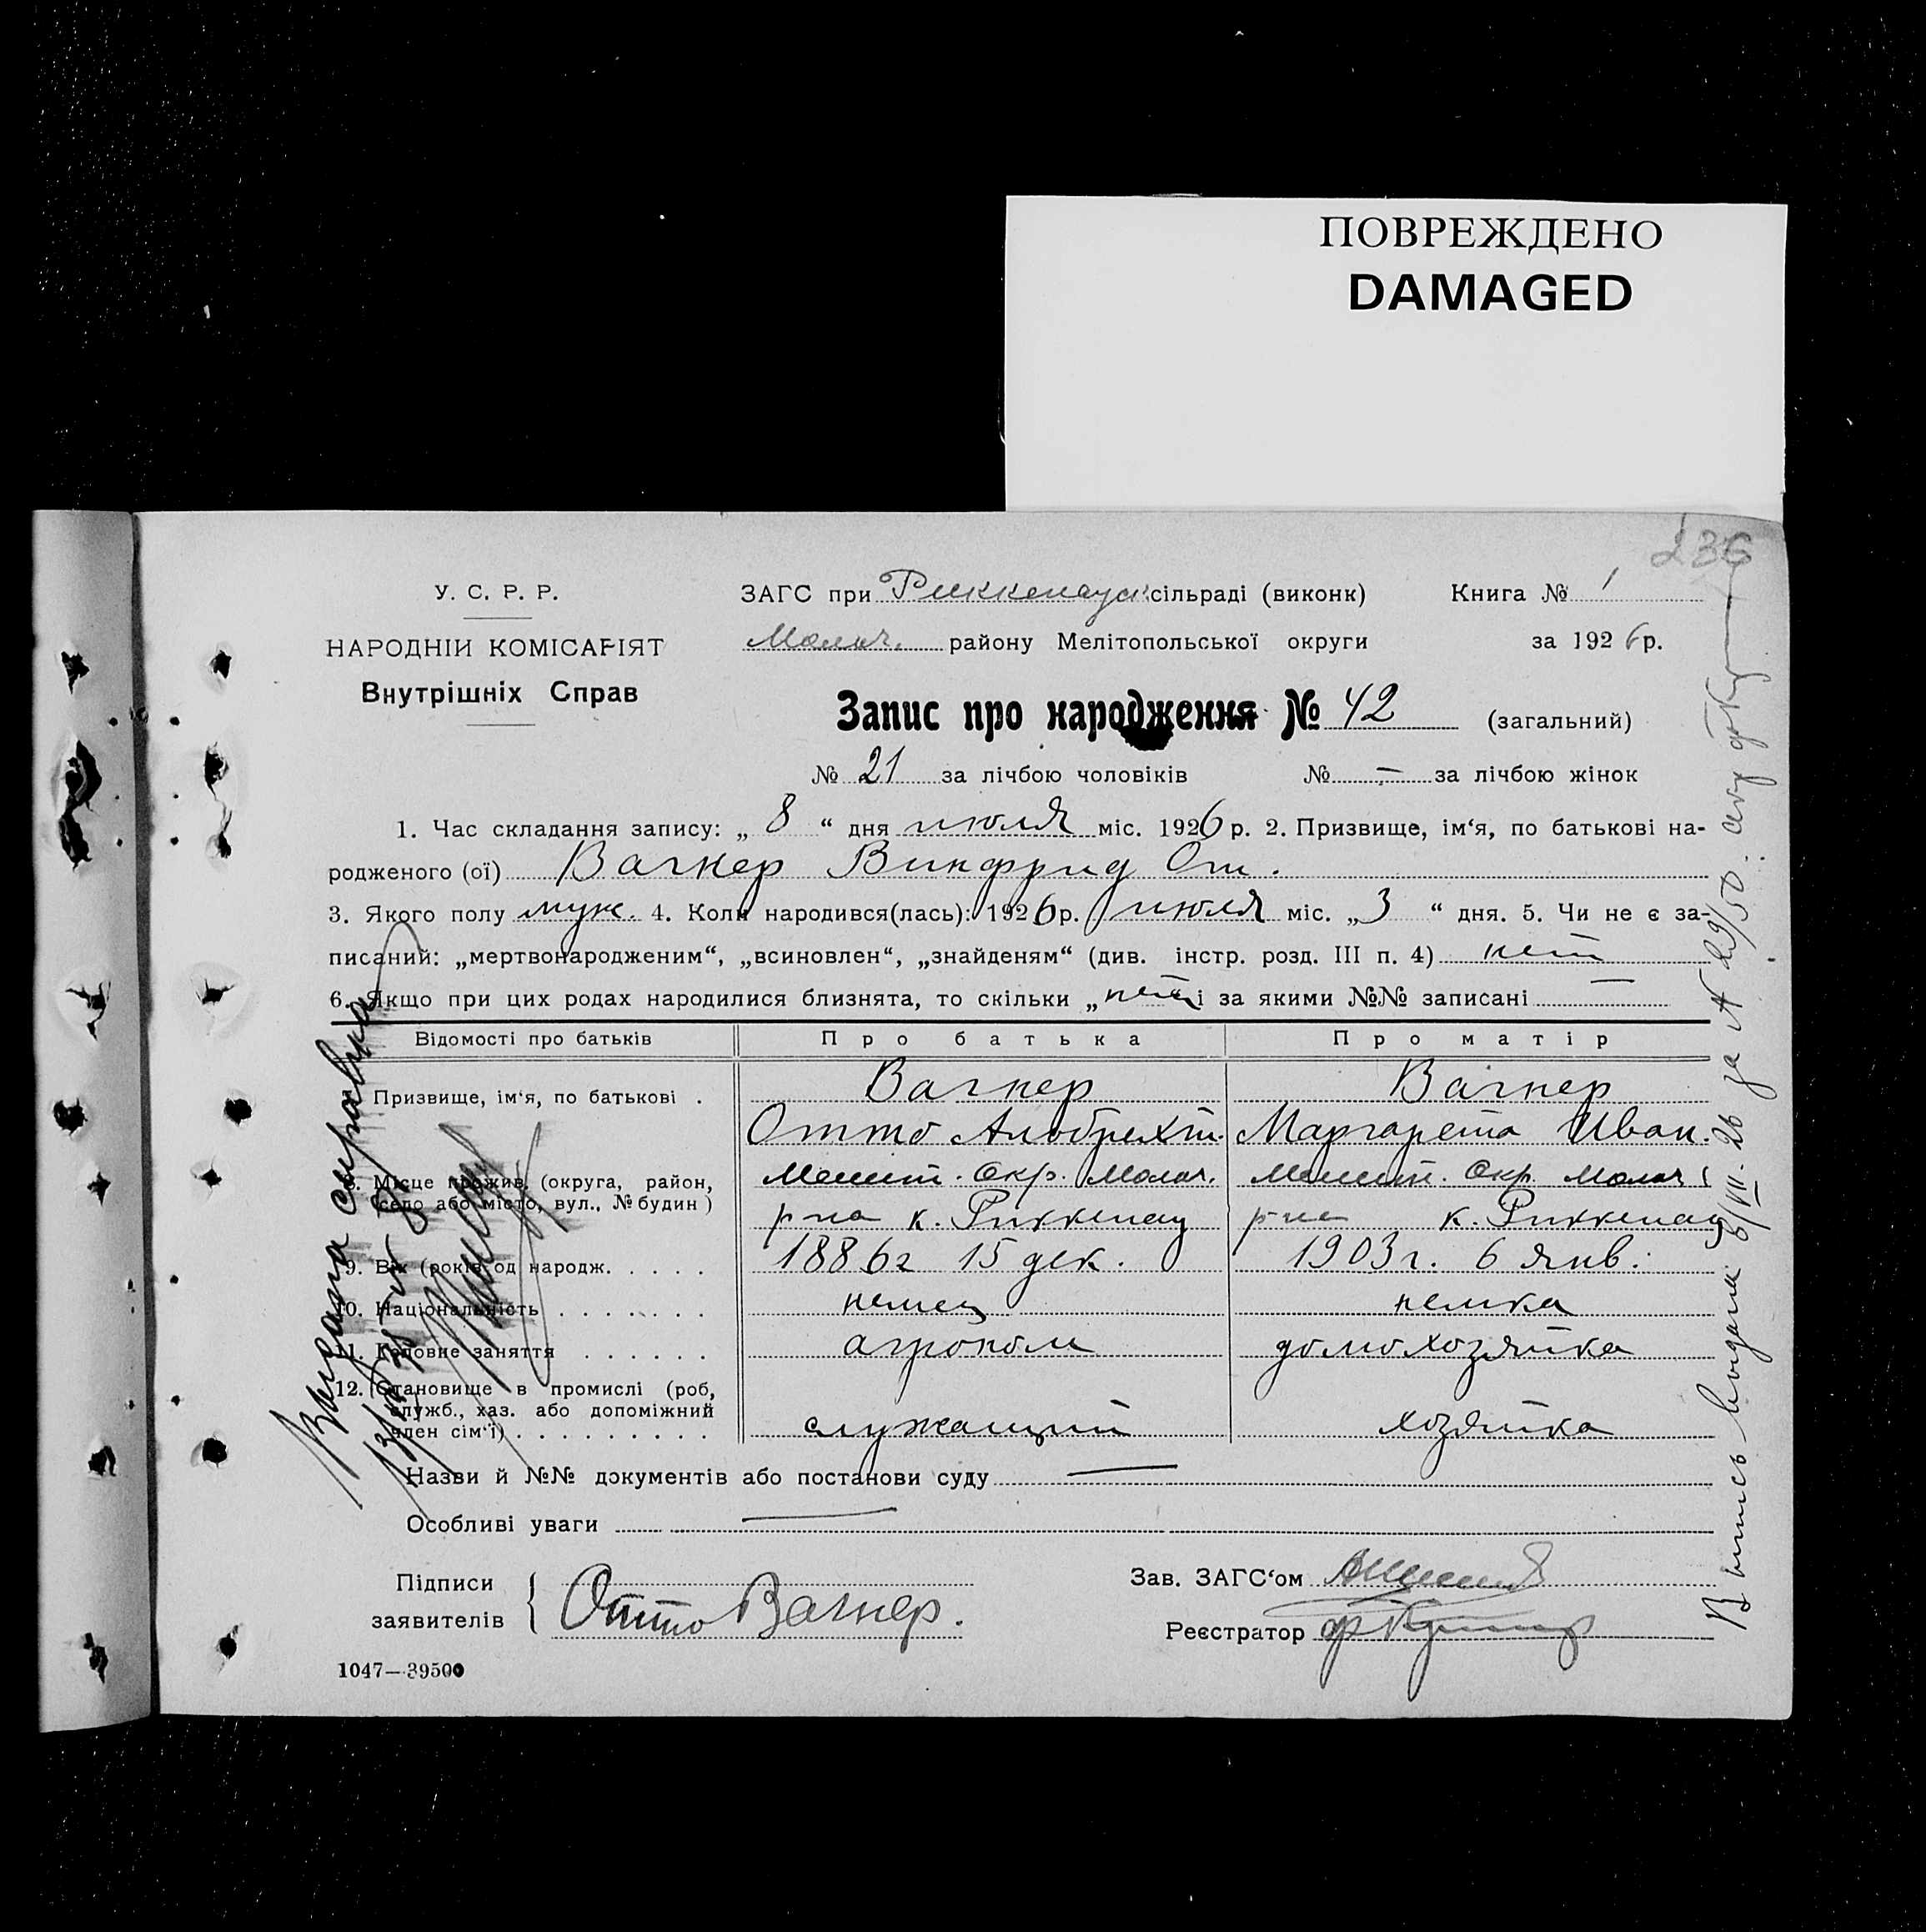 ПОВРЕЖДЕНО
DAMAGED
236
У. С. Р. Р.
НАРОДНІИ КОМІСАРІЯТ
Внутрішніх Справ
ЗАГС при Риккенауск сільраді (виконк) Книга № 1
Молоч. району Мелітопольської округи за 1926 р.
Запис про народження № 42 (загальний)
№ 21 за лічбою чоловіків № — за лічбою жінок
1. Час складання запису: „ 8 “ дня июля міс. 1926 р. 2. Призвище, ім‘я, по батькові на-
родженого (ої) Вагнер Винфрид От.
3. Якого полу муж. 4. Коли народився(лась): 1926 р. июля міс. „3 “ дня. 5. Чи не є за-
писаний: „мертвонародженим“, „всиновлен“, „знайденям“ (див. інстр. розд. III п. 4) нет
6. Якщо при цих родах народилися близнята, то скільки „нет і за якими №№ записані —
Відомості про батьків Про батька Про матір
Призвище, ім‘я, по батькові . Вагнер Вагнер
Отто Альбрехт. Маргарета Иван.
8. Місце прожив. (округа, район, село або місто, вул., № будин ) Мелит. Окр. Молоч. Мелит. Окр. Молоч
р-на к. Риккенау р-на к. Риккенау
9. Вік (років од народж. . . . . 1886г 15 дек. 1903г. 6 янв.
10. Національність . . . . . . . немец немка
11. Головне заняття . . . . . . агроном домохозяйка
12. Становище в промислі (роб, служб., хаз. або допоміжний член сім‘ї) . . . . . . . . . служащий хозяйка
Назви й №№ документів або постанови суду —
Особливі уваги —
Підписи
заявителів Отто Вагнер.
Зав. ЗАГС‘ом
Реєстратор
1047—39500
Выдана справка
Выпись выдана 8/VII. 26 за № 29/50.